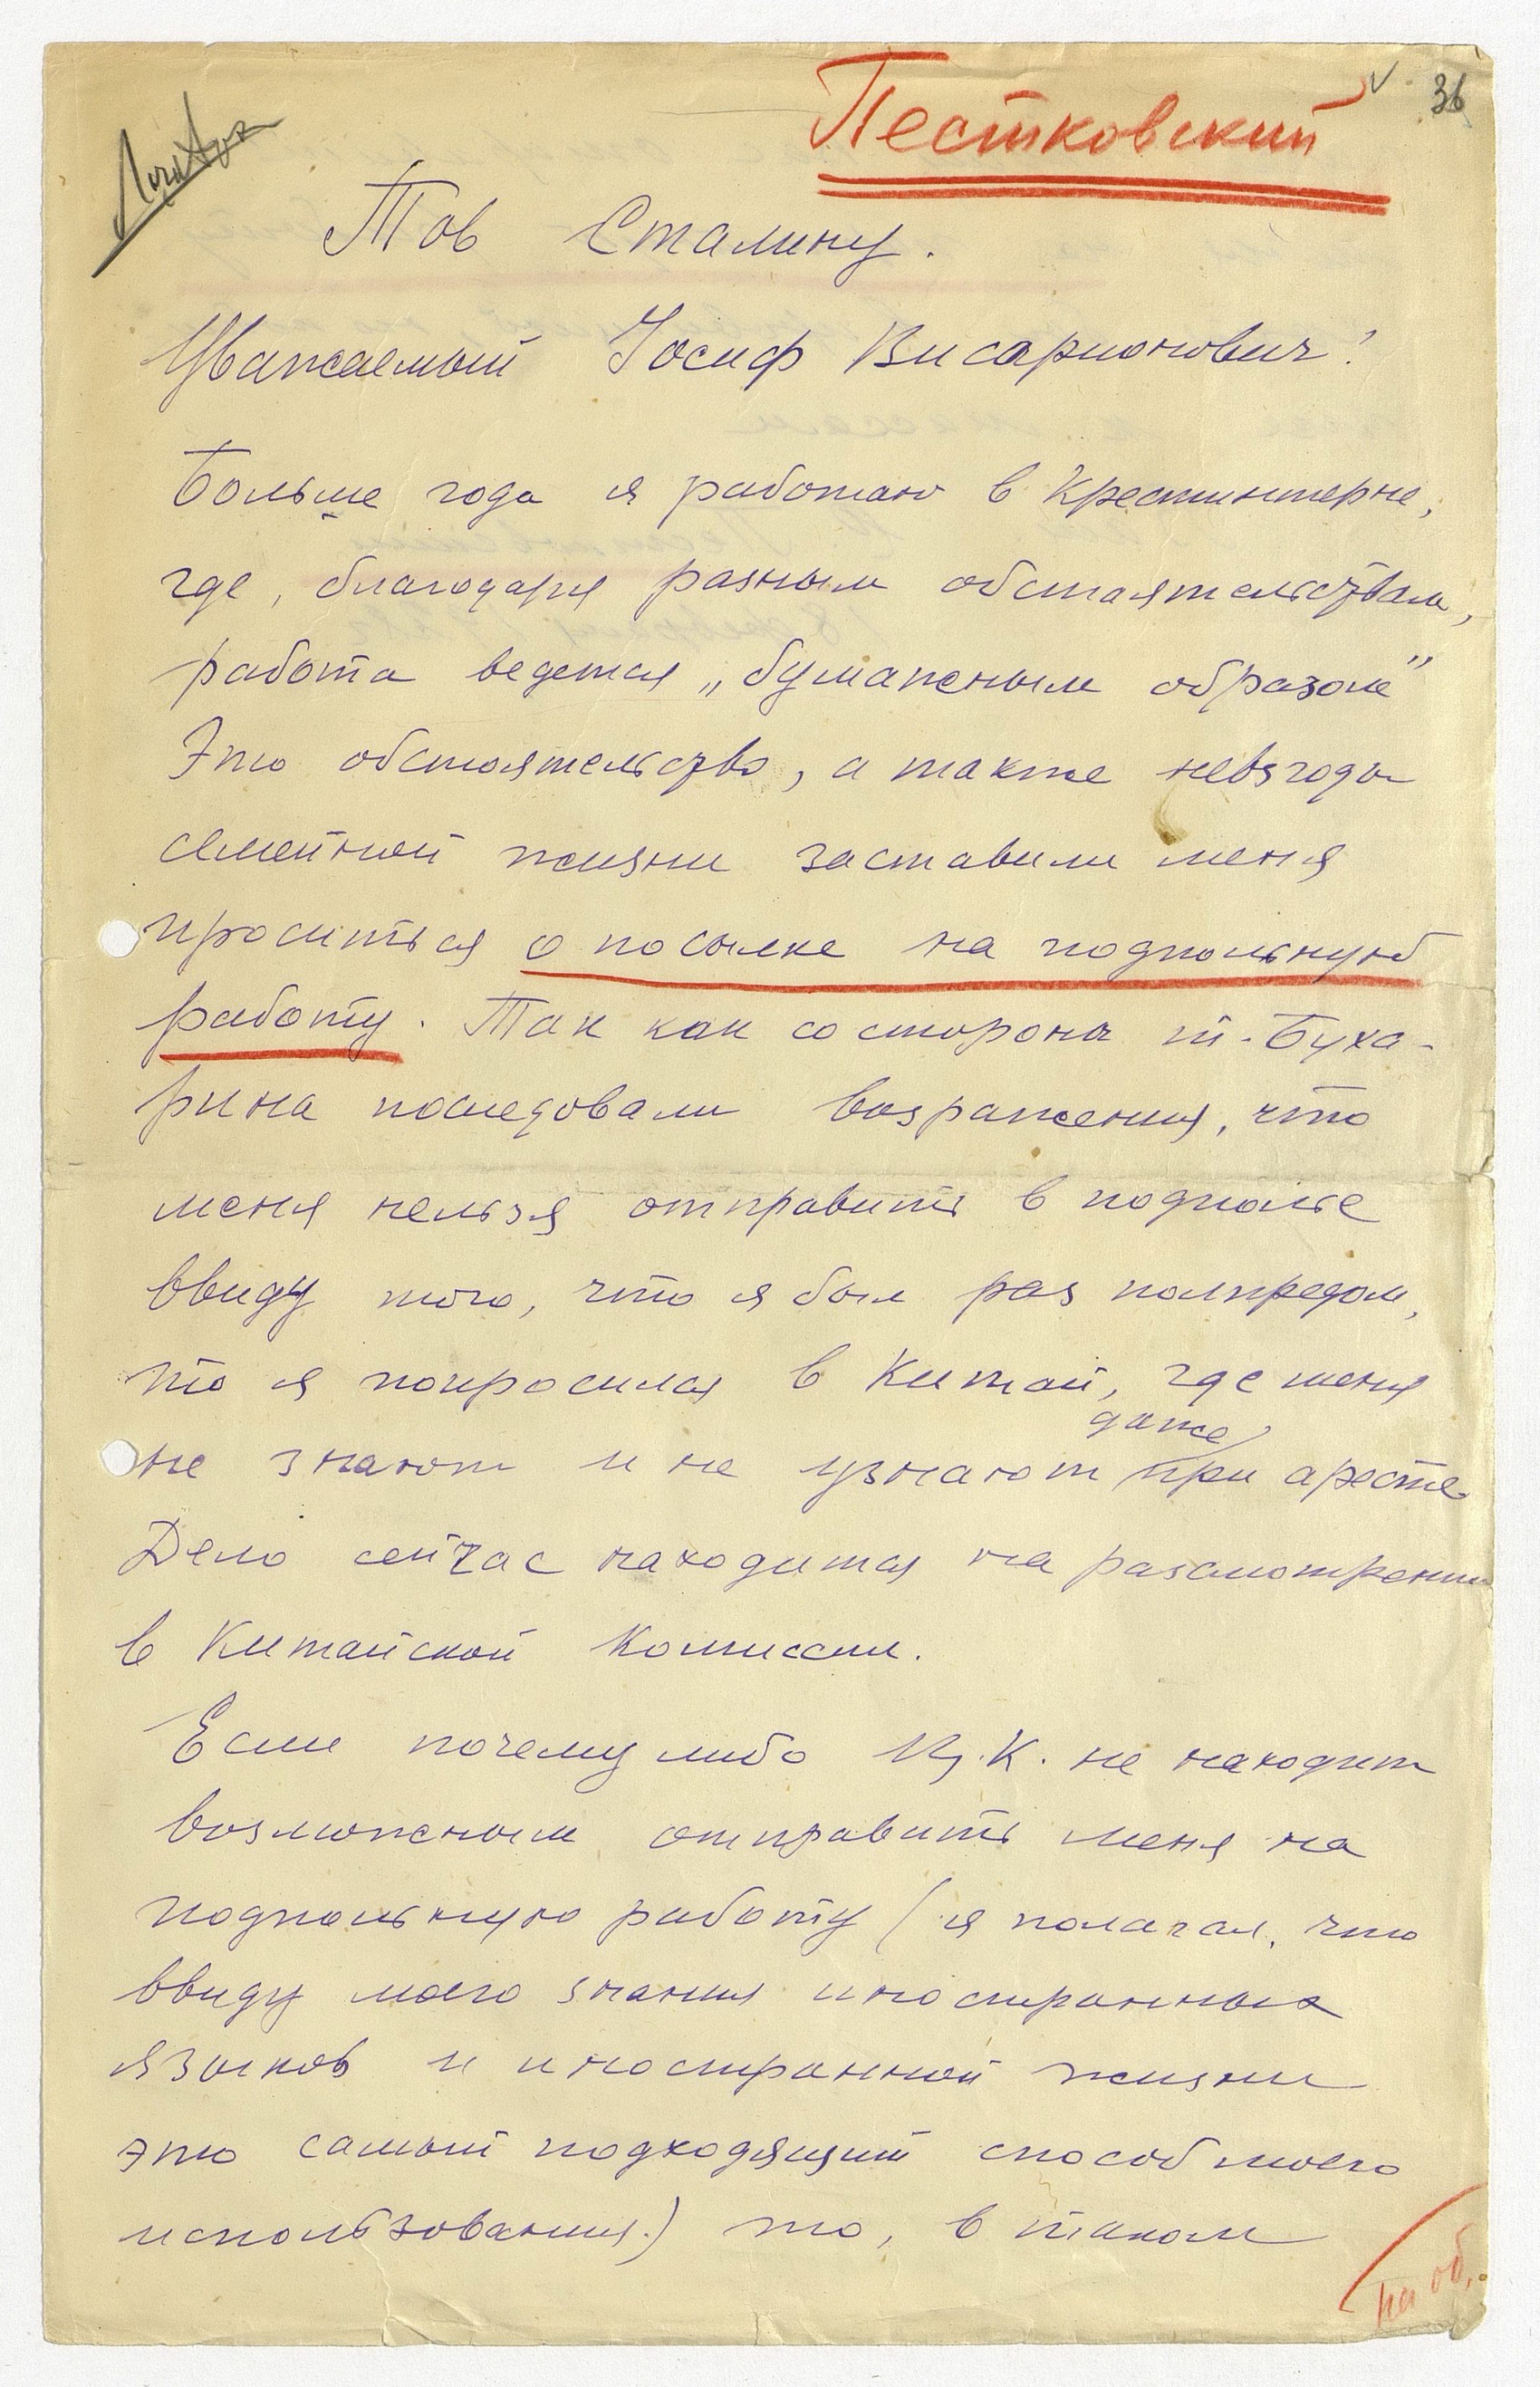 Пестковский
36
Тов Сталину.
Уважаемый Иосиф Висарионович!
Больше года я работаю в Крестинтерне,
где, благодаря разным обстоятельствам,
работа ведется „бумажным образом"
Это обстоятельство, а также невзгоды
семейной жизни заставили меня
проситься о посылке на подпольную
работу. Так как со стороны т. Буха-
рина последовали возражения, что
меня нельзя отправить в подполье
ввиду того, что я был раз полпредом,
то я попросился в Китай, где меня
даже
не знают и не узнают при аресте
Дело сейчас находится на разсмотрении
в Китайской Комиссии.
Если почему либо Ц.К. не находит
возможным отправить меня на
подпольную работу (я полагал, что
ввиду моего знания иностранных
языков и иностранной жизни
это самый подходящий способ моего
использования.) то, в таком
на об.